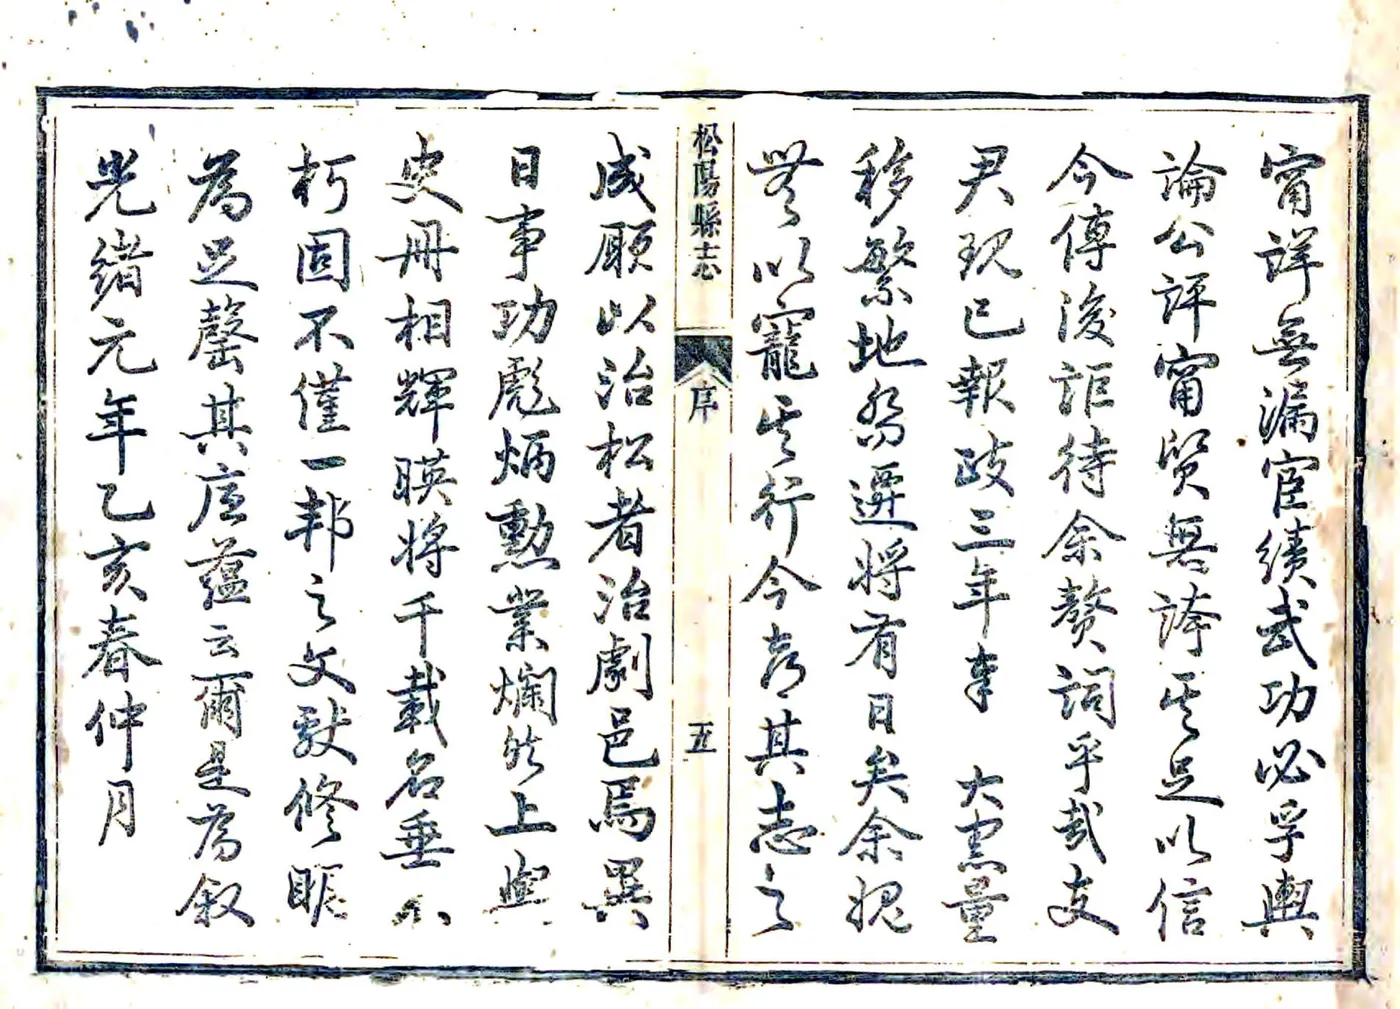 甯詳無漏宦績武功必孚輿
論公評甯質無誇其足以信
今傳後詎待余贅詞乎哉支
尹現已報政三年奉 大憲量
移繁地喬遷將有日矣余愧
無以寵其行今喜其志之
松陽縣志 序 五
成願以治松者治劇邑焉異
日事功彪炳勲業爛然上與
史冊相輝暎將千載名垂不
朽固不僅一邦之文獻修賅
為足罄其底蘊云爾是為敘
光緒元年乙亥春仲月